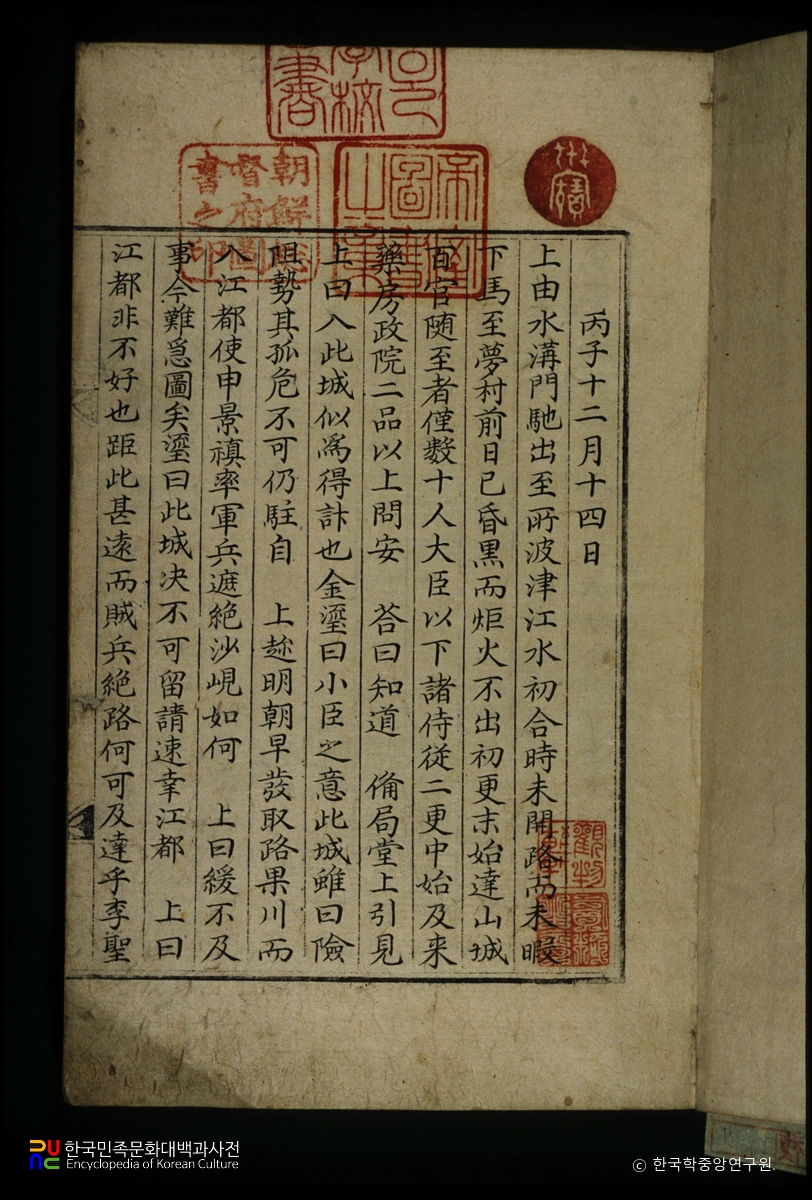 丙子十二月十四日
上由水溝門馳出至所波津江水初合時未開路而未暇
下馬至夢村前日已昏黑而炬火不出初更末始達山城
百官随至者僅數十人大臣以下諸侍從二更中始及来
藥房政院二品以上問安 答曰知道 備局堂上引見
上曰入此城似爲得計也金瑬曰小臣之意此城雖曰險
阻勢甚孤危不可仍駐自 上趂明朝早發取路果川而
入江都使申景禛率軍兵遮絶沙峴如何 上曰緩不及
事今難爲圖矣瑬曰此城决不可留請速幸江都 上曰
江都非不好也距此甚遠而賊兵絶路何可及達乎李聖
朝鮮總
督府圖
書之印
한국민족문화대백과사전
Encyclopedia of Korean Culture
ⓒ 한국학중앙연구원.